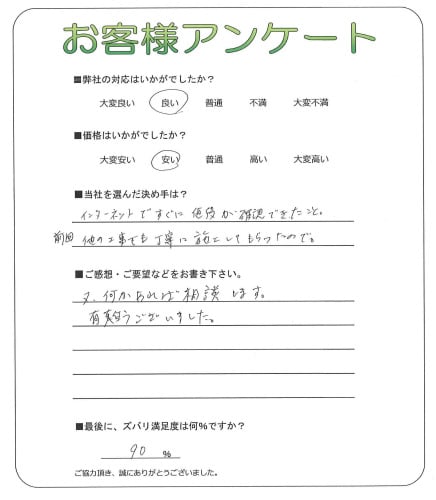 お客様アンケート
■弊社の対応はいかがでしたか？
大変良い 良い 普通 不満 大変不満
■価格はいかがでしたか？
大変安い 安い 普通 高い 大変高い
■当社を選んだ決め手は？
インターネットですぐに価格が確認できたこと。
前回 他の工事でも丁寧に施工してもらったので。
■ご感想・ご要望などをお書き下さい。
又、何かあれば相談します。
有難うございました。
■最後に、ズバリ満足度は何％ですか？
90 ％
ご協力頂き、誠にありがとうございました。